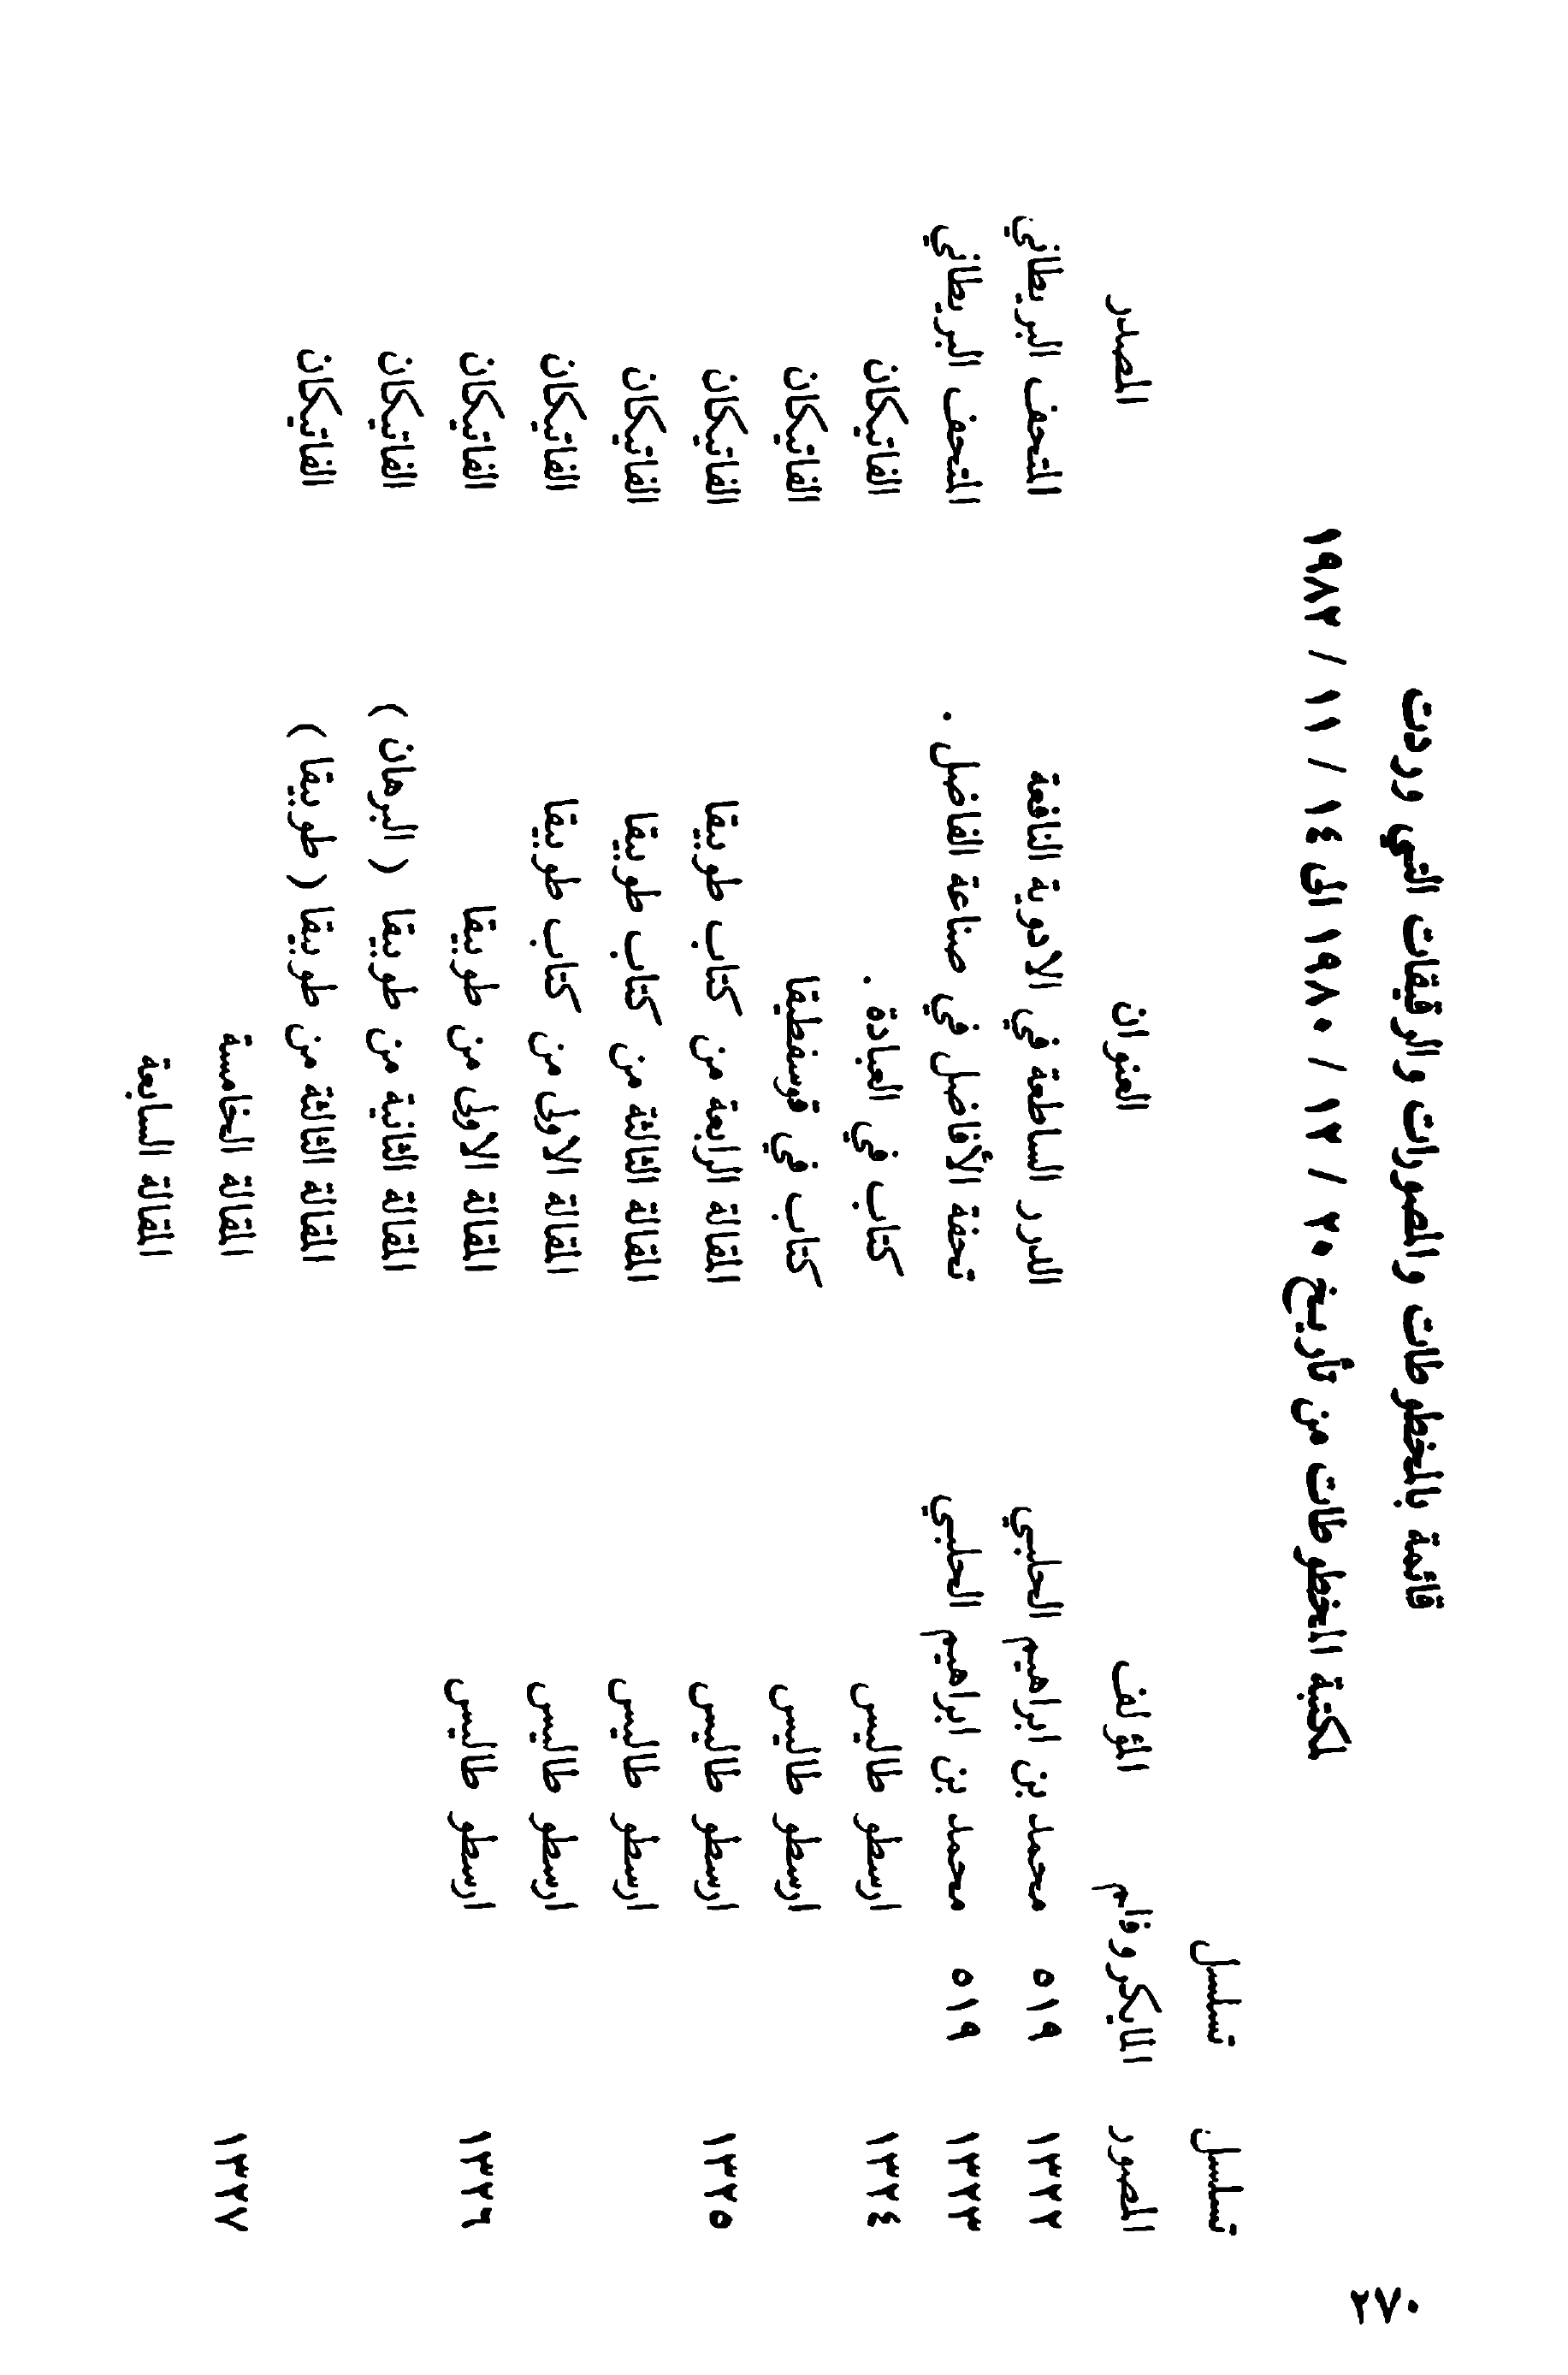 ٢٧٠
قائمة بالمخطوطات والمصورات والرقيقات التي وردت
لمكتبة المخطوطات من تأريخ ٢٠ / ١٢ / ١٩٨٠ الى ١٤ / ١١ / ١٩٨٢
تسلسل تسلسل
المصور المايكروفلم المؤلف العنوان المصدر
١٣٢٢ ٥١٩ محمد بن ابراهيم الحلبي الدرر الساطعة في الادوية النافعة المتحف البريطاني
١٣٢٣ ٥١٩ محمد بن ابراهيم الحلبي تحفة الأفاضل في صناعة الفاضل . المتحف البريطاني
١٣٢٤ ارسطو طاليس كتاب في العبادة . الفاتيكان
ارسطو طاليس كتاب في قوسفطيقا الفاتيكان
١٣٢٥ ارسطو طاليس المقالة الرابعة من كتاب طوبيقا الفاتيكان
ارسطو طاليس المقالة الثالثة من كتاب طوبيقا الفاتيكان
ارسطو طاليس المقالة الاولى من كتاب طوبيقا الفاتيكان
١٣٢٦ ارسطو طاليس المقالة الاولى من طوبيقا الفاتيكان
المقالة الثانية من طوبيقا ( البرهان ) الفاتيكان
المقالة الثالثة من طوبيقا ( طوبيقا ) الفاتيكان
١٣٢٧ المقالة الخامسة
المقالة السابعة